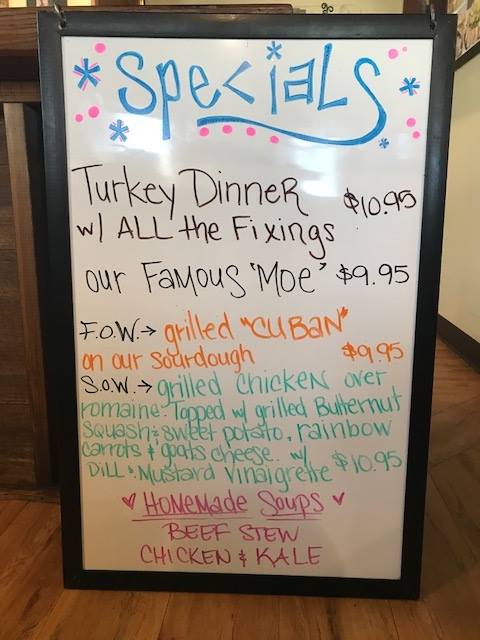 Specials
Turkey Dinner $10.95
w/ ALL the Fixings
our Famous "Moe" $9.95
F.O.W.→ grilled "CUBAN"
on our sourdough $9.95
S.O.W.→ grilled chicken over
romaine. Topped w/ grilled Butternut
squash & sweet potato, rainbow
carrots & goats cheese.. w/
Dill & Mustard Vinaigrette $10.95
♥ Homemade Soups ♥
BEEF STEW
CHICKEN & KALE